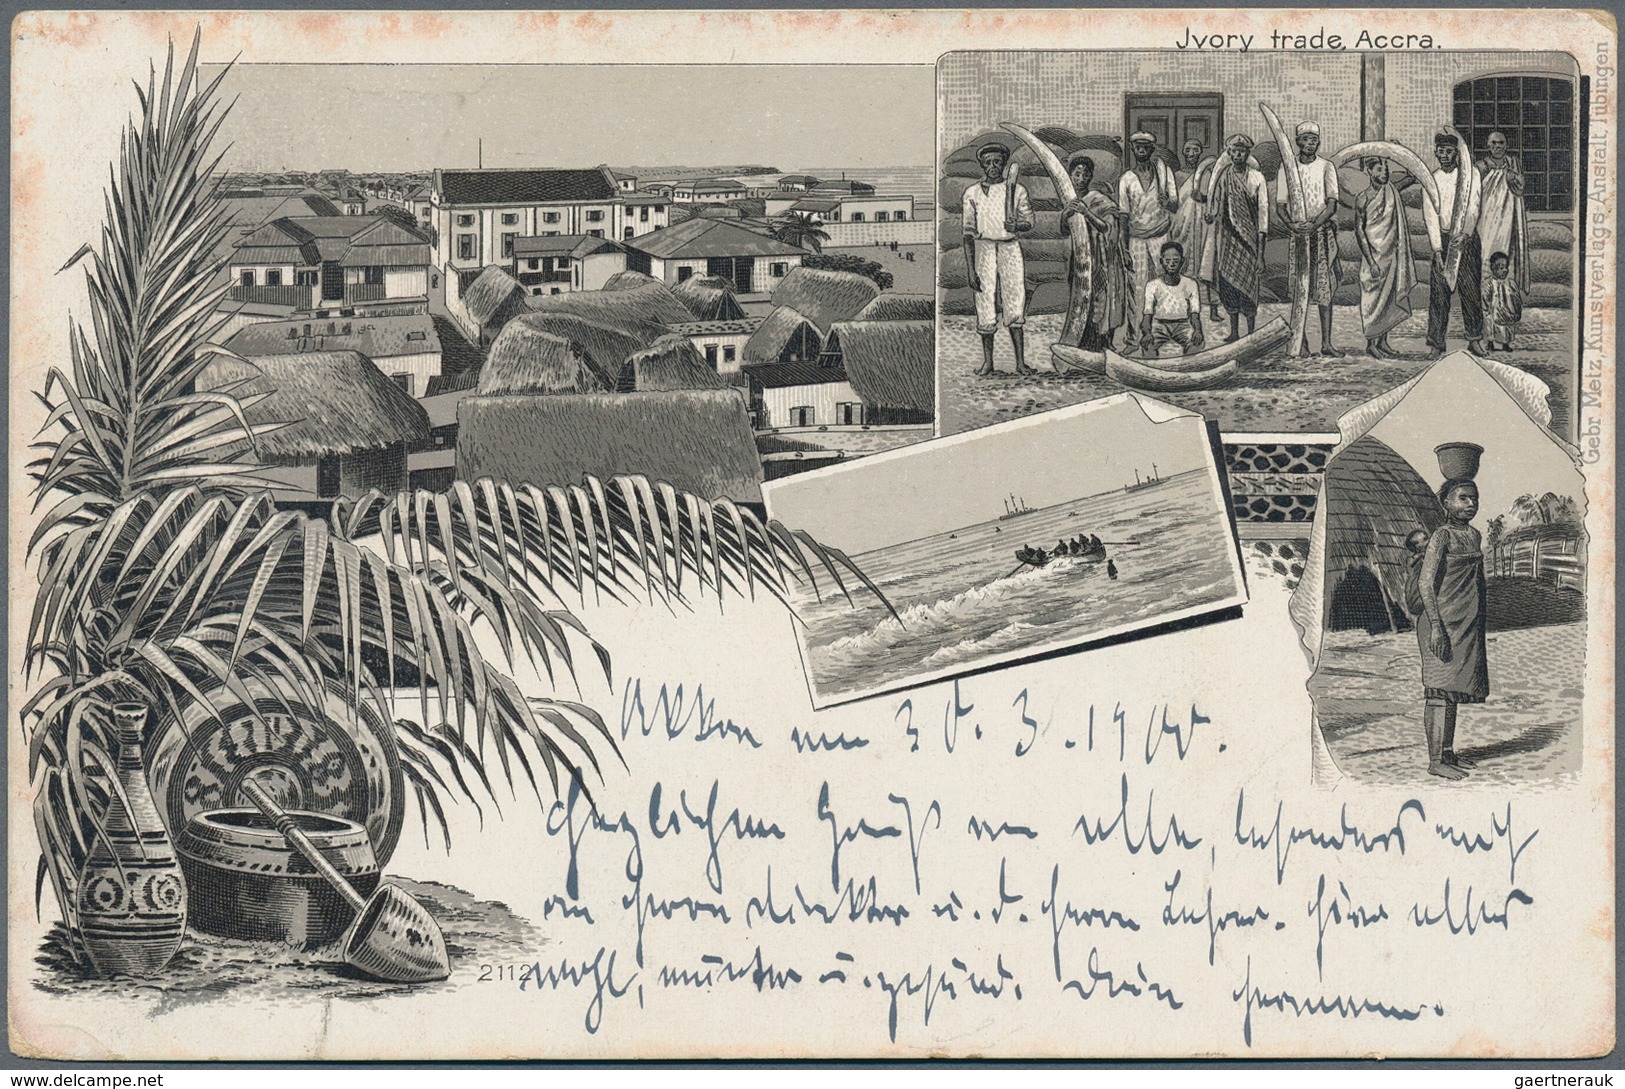 Jvory trade, Accra.
Gebr Metz, Kunstverlags-Anstalt, Tübingen
Akkra, am 30. 3. 1900.
Herzlichen Gruß an alle, besonders auch
an Herrn Direktor u. d. Herrn Lehrer. Hier alles
wohl, munter u. gesund. Dein Hermann.
2112
delcampe.net
gaertnerauk